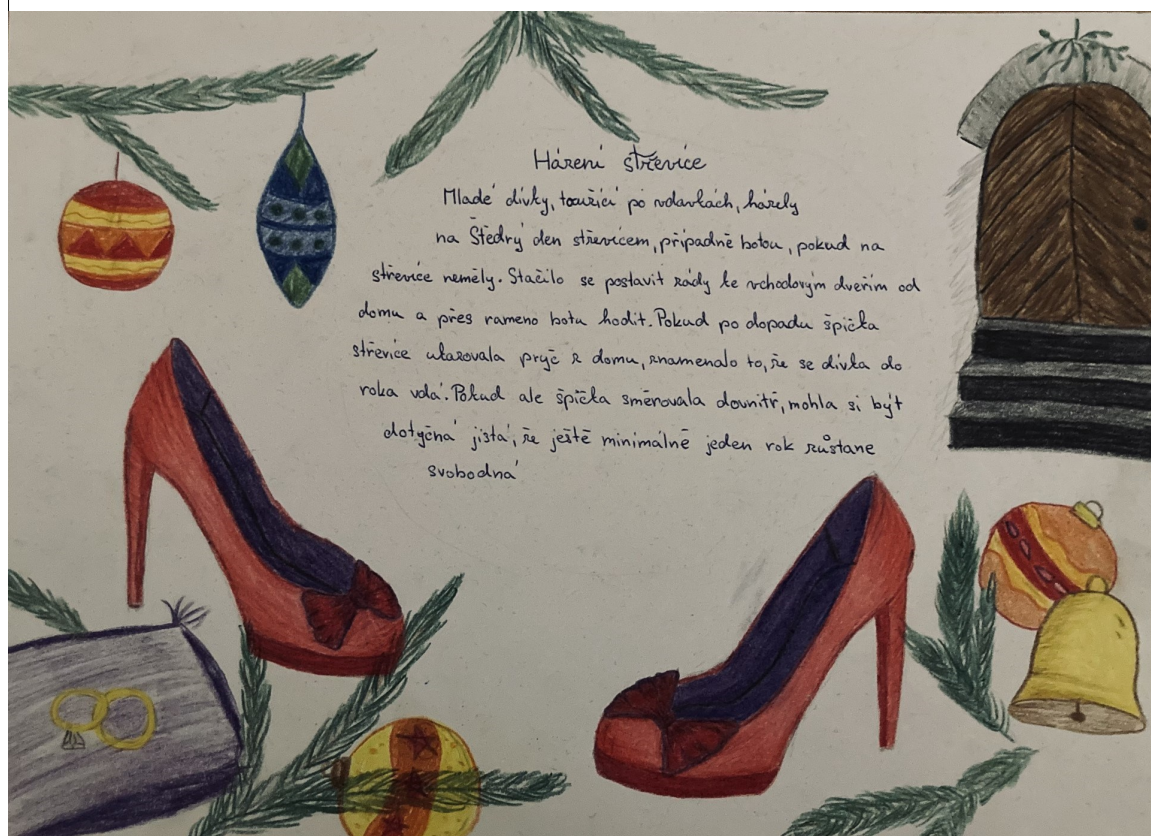 Házení střevíce
Mladé dívky, toužící po vdavkách, házely
na Štědrý den střevícem, případně botou, pokud na
střevíce neměly. Stačilo se postavit zády ke vchodovým dveřím od
domu a přes rameno botu hodit. Pokud po dopadu špička
střevíce ukazovala pryč z domu, znamenalo to, že se dívka do
roka vdá. Pokud ale špička směrovala dovnitř, mohla si být
dotyčná jistá, že ještě minimálně jeden rok zůstane
svobodná